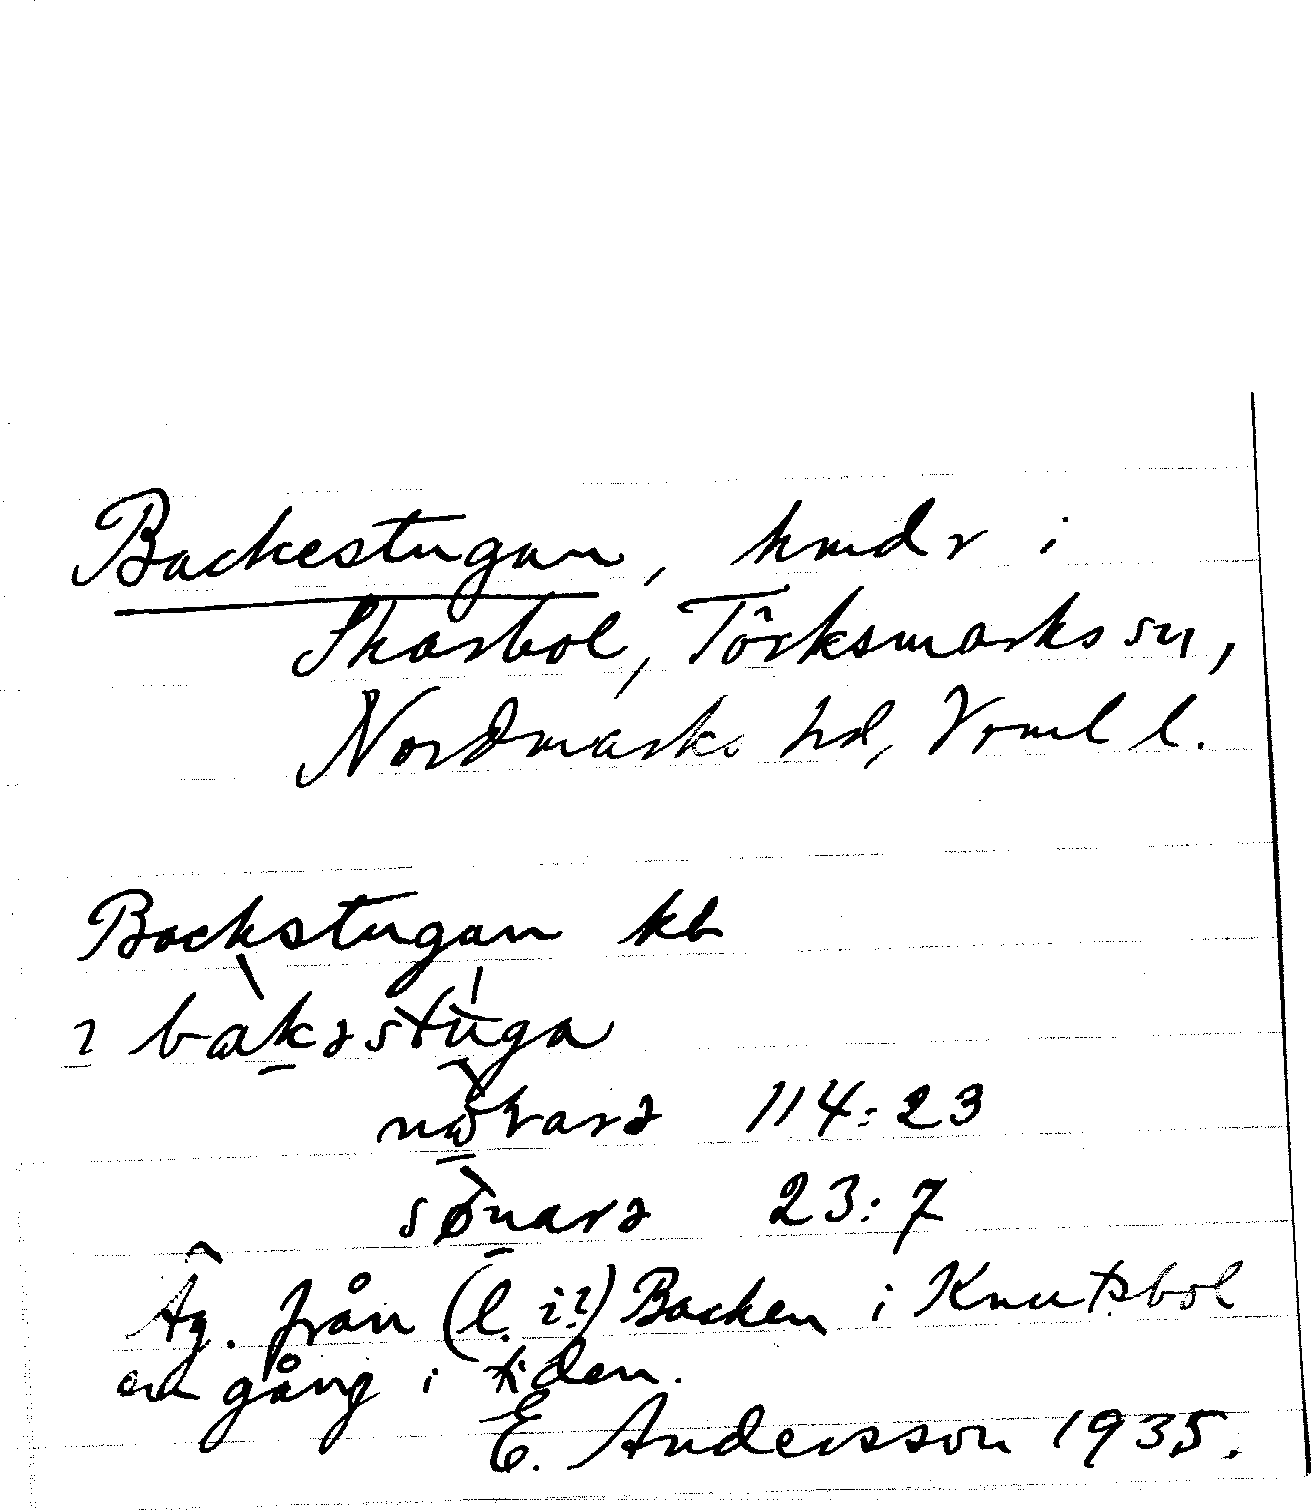 Backestugan, hmdr i
Skarbol, Törksmarks sn,
Nordmarks hd, Vrml l.
Backstugan kb
bakəstuga
114:23
sønarə 23:7
Äg. från (l. i?) Backen i Knutsbol
en gång i tiden.
E. Andersson 1935.